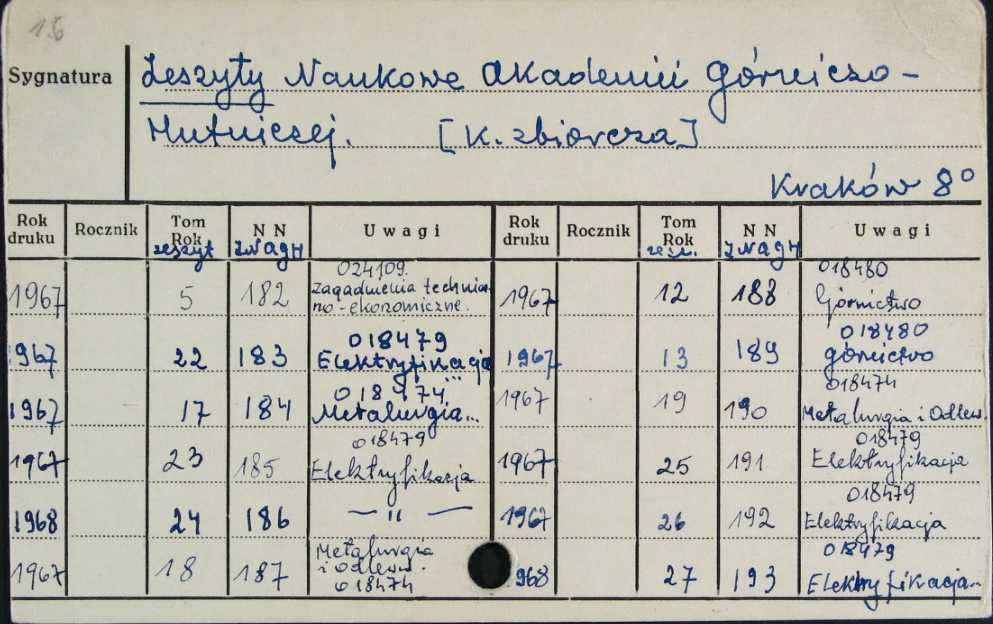 16
Sygnatura
Zeszyty Naukowe Akademii Górniczo-
Hutniczej. [K. zbiorcza]
Kraków 8°
Rok druku Rocznik Tom Rok zeszyt N N ZNAGH Uwagi Rok druku Rocznik Tom Rok zesz. N N ZNAGH Uwagi
024109.
1967 5 182 zagadnienia technicz-
no-ekonomiczne.
018480
1967 12 188 Górnictwo
018479
1967 22 183 Elektryfikacja...
018480
1967 13 189 górnictwo
018474
1967 17 184 Metalurgia...
018474
1967 19 190 Metalurgia i Odlew.
018479
1967 23 185 Elektryfikacja
018479
1967 25 191 Elektryfikacja
1968 24 186 — " —
018479
1967 26 192 Elektryfikacja
1967 18 187 Metalurgia
i odlewn.
018474
018479
968 27 193 Elektryfikacja...